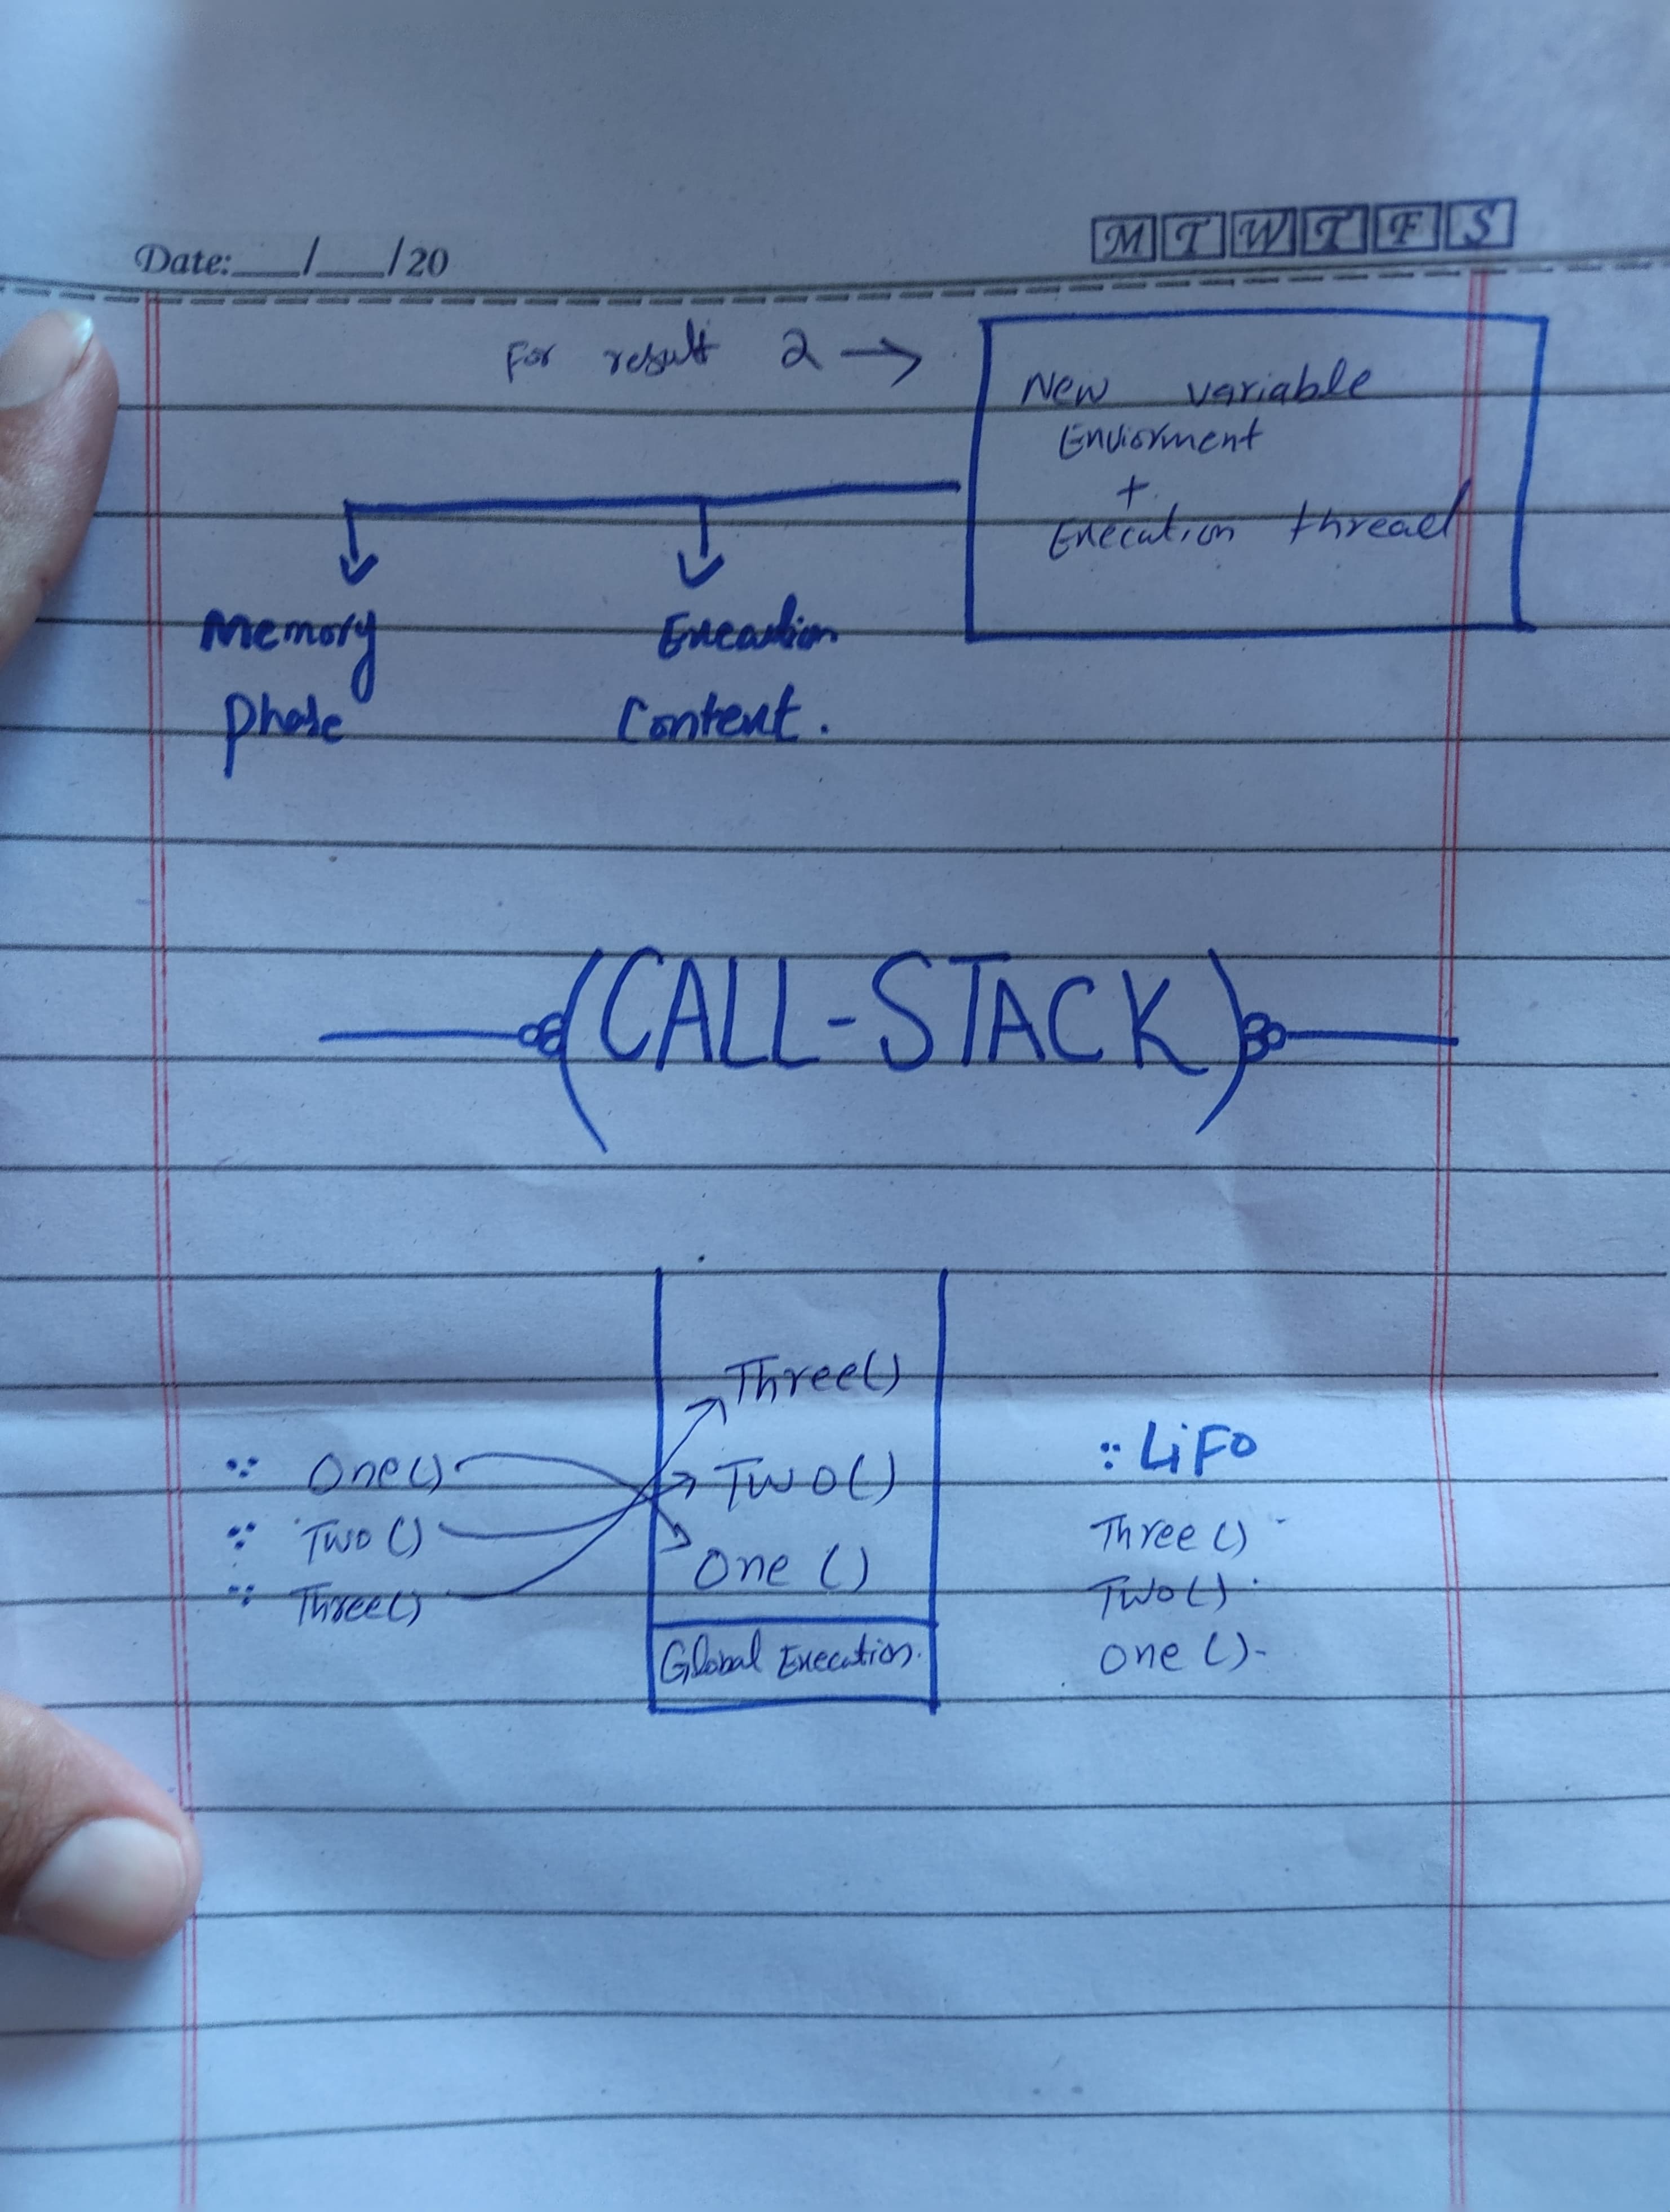 Date:___/___/20
M T W T F S
For result 2 →
New variable
Enviorment
+
Execution thread
Memory
Phase
Execution
Context.
(CALL-STACK)
∵ One()
∵ Two()
∵ Three()
Three()
Two()
One ()
Global Execution.
:: LiFo
Three ()
Two()
One ()-